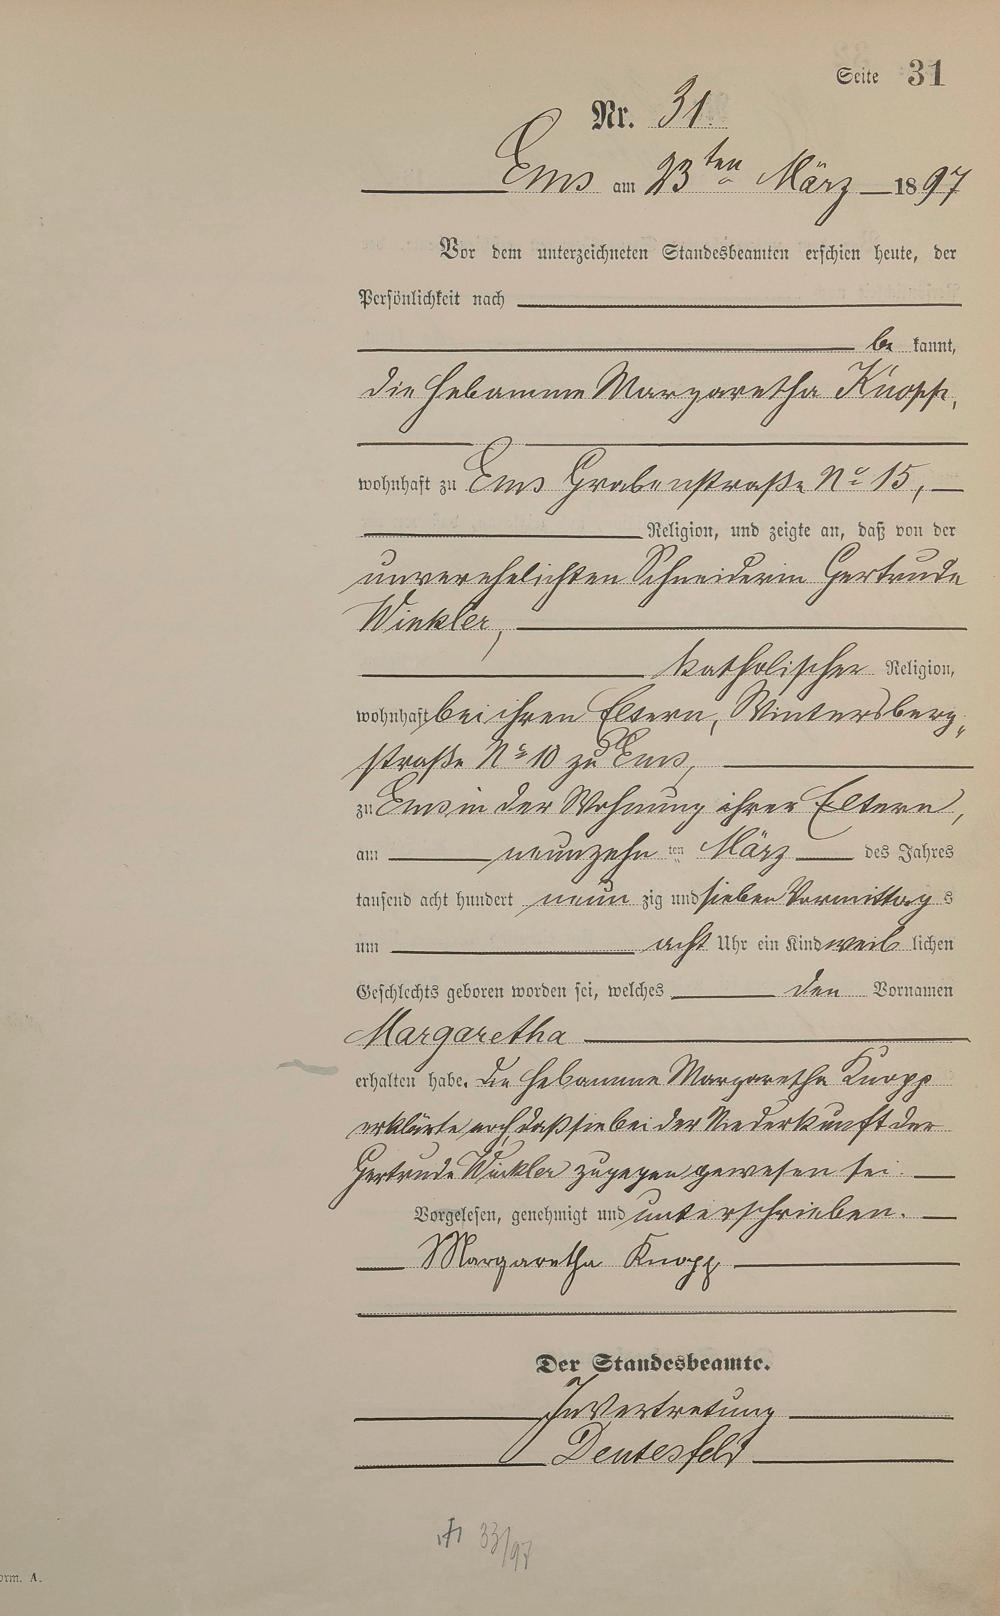 Seite 31
Nr. 31.
Ems am 23ten März 1897
Vor dem unterzeichneten Standesbeamten erschien heute, der
Persönlichkeit nach
be kannt,
die Hebamme Margaretha Knopp,
wohnhaft zu Ems Grabenstraße No 15,
Religion, und zeigte an, daß von der
unverehelichten Schneiderin Gertrude
Winkler,
katholischer Religion,
wohnhaft bei ihren Eltern, Wintersberg„
straße No 10 zu Ems,
zu Ems in der Wohnung ihrer Eltern,
am neunzehn ten März des Jahres
tausend acht hundert neun zig und sieben Vormittag s
um acht Uhr ein Kind weib lichen
Geschlechts geboren worden sei, welches den Vornamen
Margaretha
erhalten habe. Die Hebamme Margaretha Knopp
erklärte noch, daß sie bei der Niederkunft der
Gertrude Winkler zugegen gewesen sei.
Vorgelesen, genehmigt und unterschrieben.
Margaretha Knopp
Der Standesbeamte.
In Vertretung
33/97
orm. A.